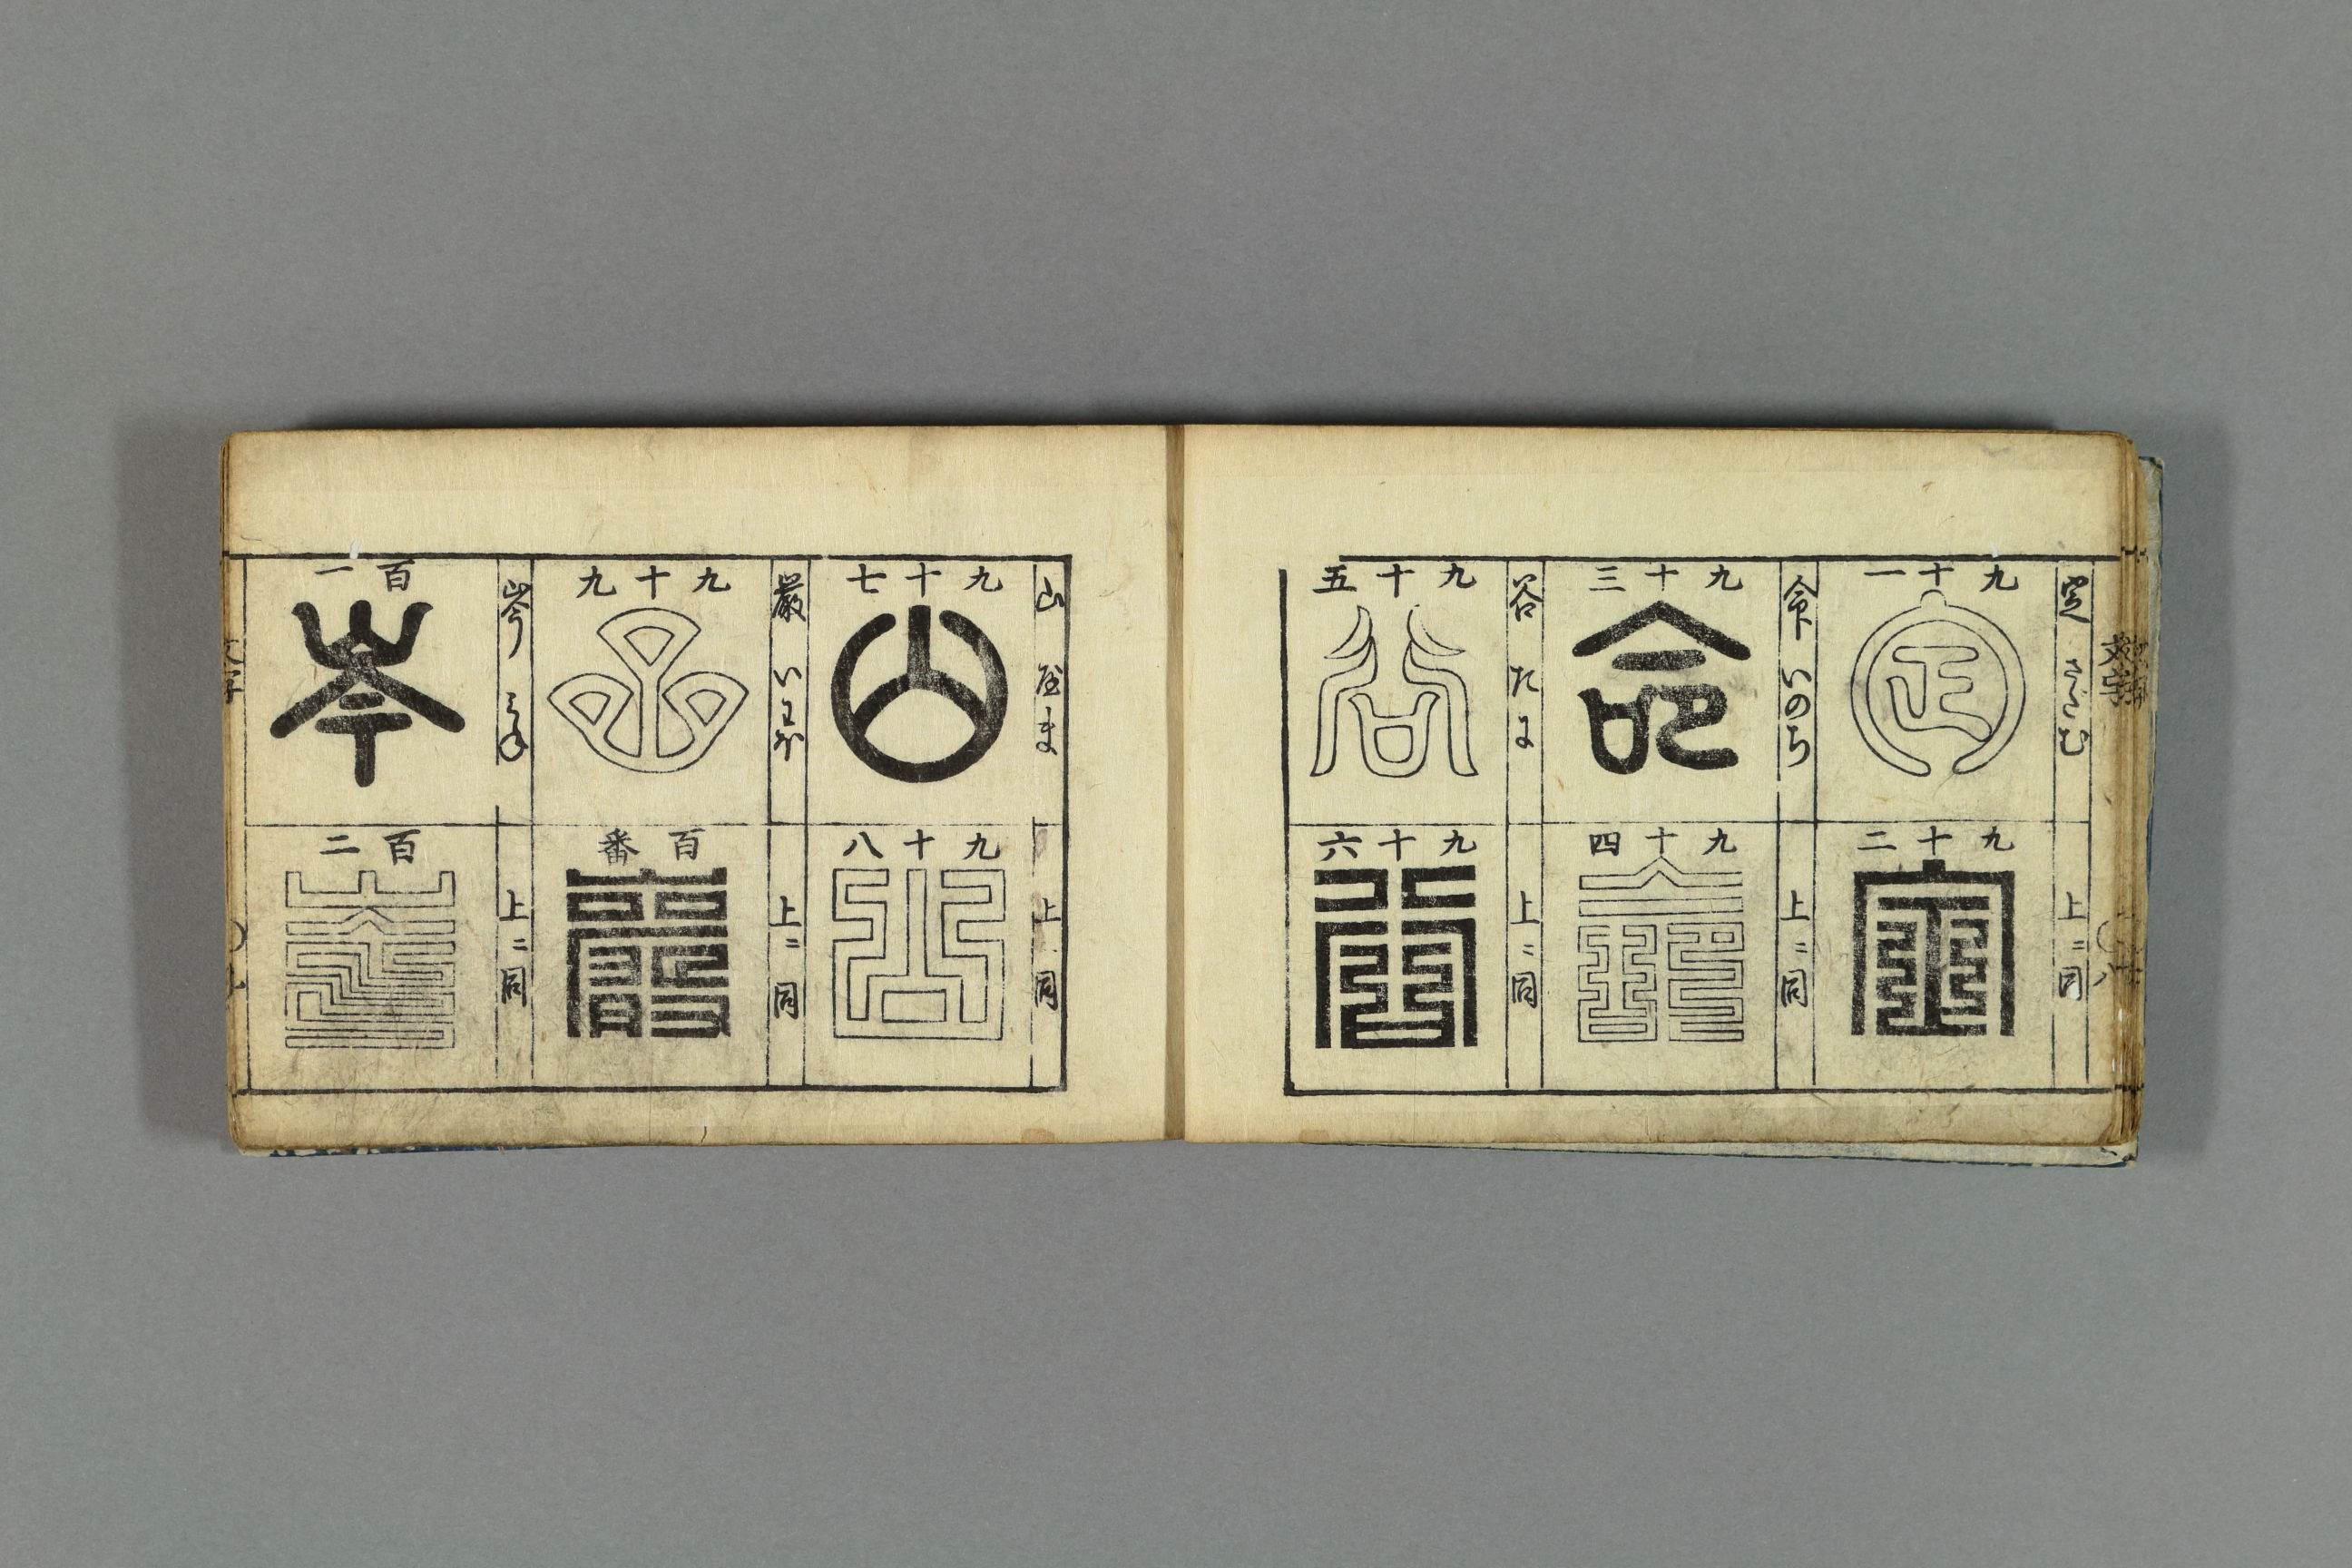 定 さだむ
九十一
上ニ同
九十二
命 いのち
九十三
上ニ同
九十四
谷 たに
九十五
上ニ同
九十六
山 屋ま
九十七
山
上ニ同
九十八
巌 いわほ
九十九
上ニ同
百番
岑 みね
百一
岑
上ニ同
百二